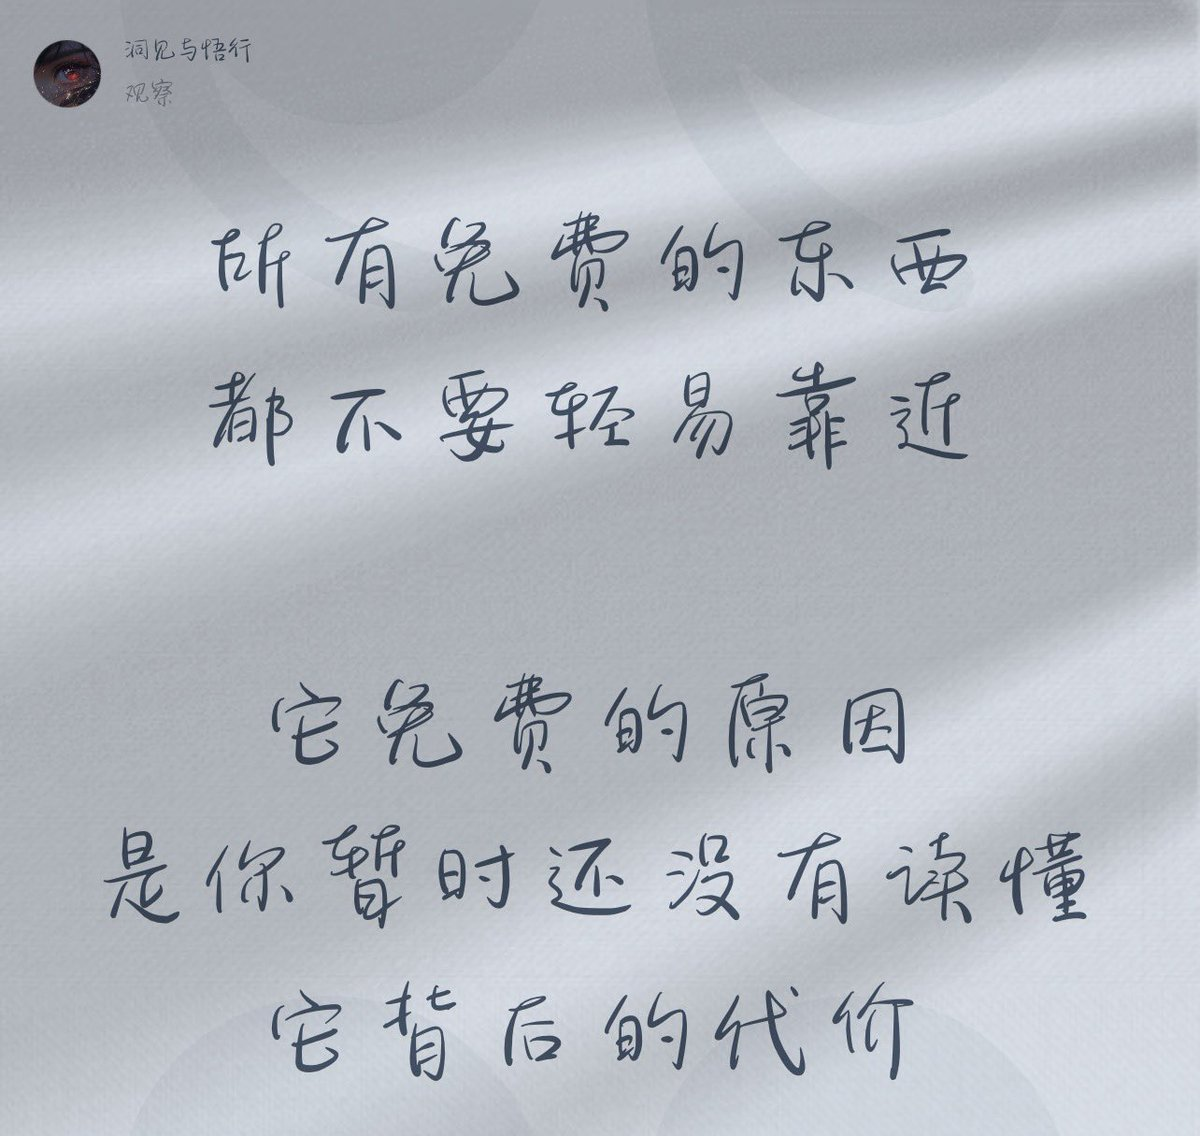 洞见与悟行
观察
所有免费的东西
都不要轻易靠近
它免费的原因
是你暂时还没有读懂
它背后的代价